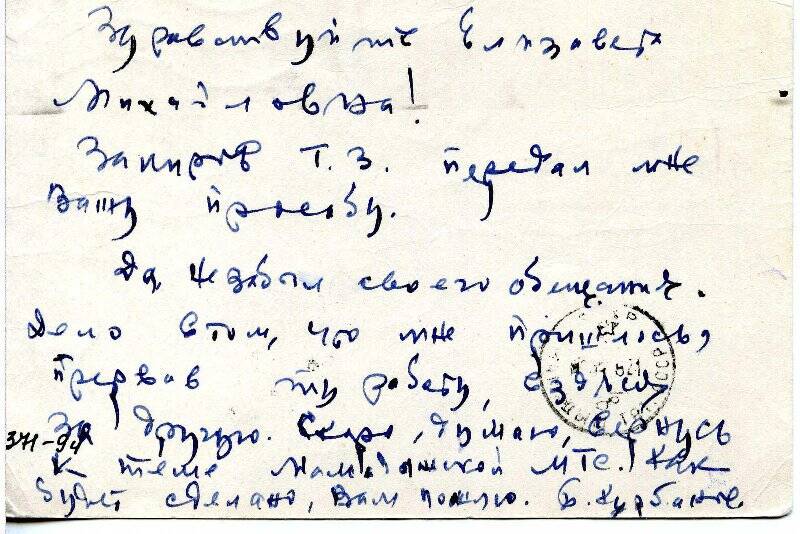 Здравствуйте Елизавета
Михайловна!
Закиров Т. З. передал мне
Вашу просьбу.
Да, не забыл своего обещания.
Дело в том, что мне пришлось,
прервав ту работу,
за другую. Скоро, думаю, вернусь
371-94
к теме МТС. Как
будет сделано, Вам пошлю. Б. Курбанов.